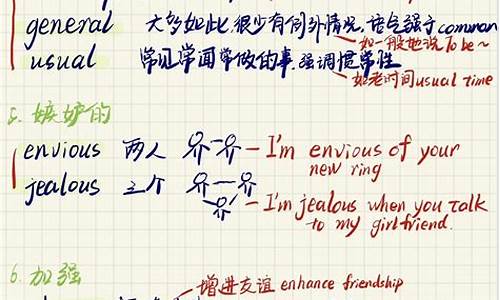 general 大多如此,很少有例外情况,语气强于common
如一般地说 To be~
usual 常见常闻常做的事,强调惯常性
如老时间usual time
5. 嫉妒的
envious 两人 I'm envious of your
new ring
jealous 三个 I'm jealous when you talk
to my girlfriend.
6. 加强
增进友谊 enhance friendship